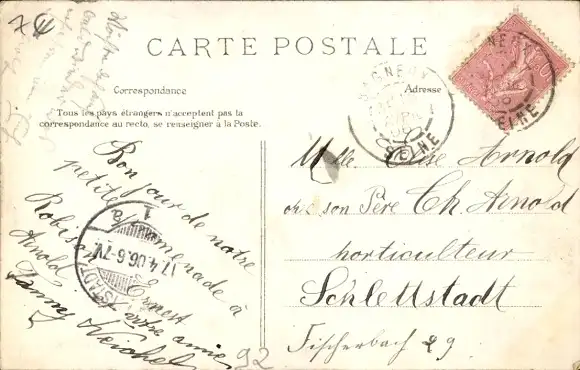 7€
CARTE POSTALE
Correspondance
Adresse
Tous les pays étrangers n'acceptent pas la
correspondance au recto, se renseigner à la Poste.
BAGNEUX
SEINE
Bonjour de notre
petite promenade à
Robinson
Ernest
Arnold
votre amie
Fanny Reichel
17.4.06.6-7V.
STADT
Mlle Elise Arnold
chez son Père Ch Arnold
horticulteur
Schlettstadt
Fischerbach 29
92